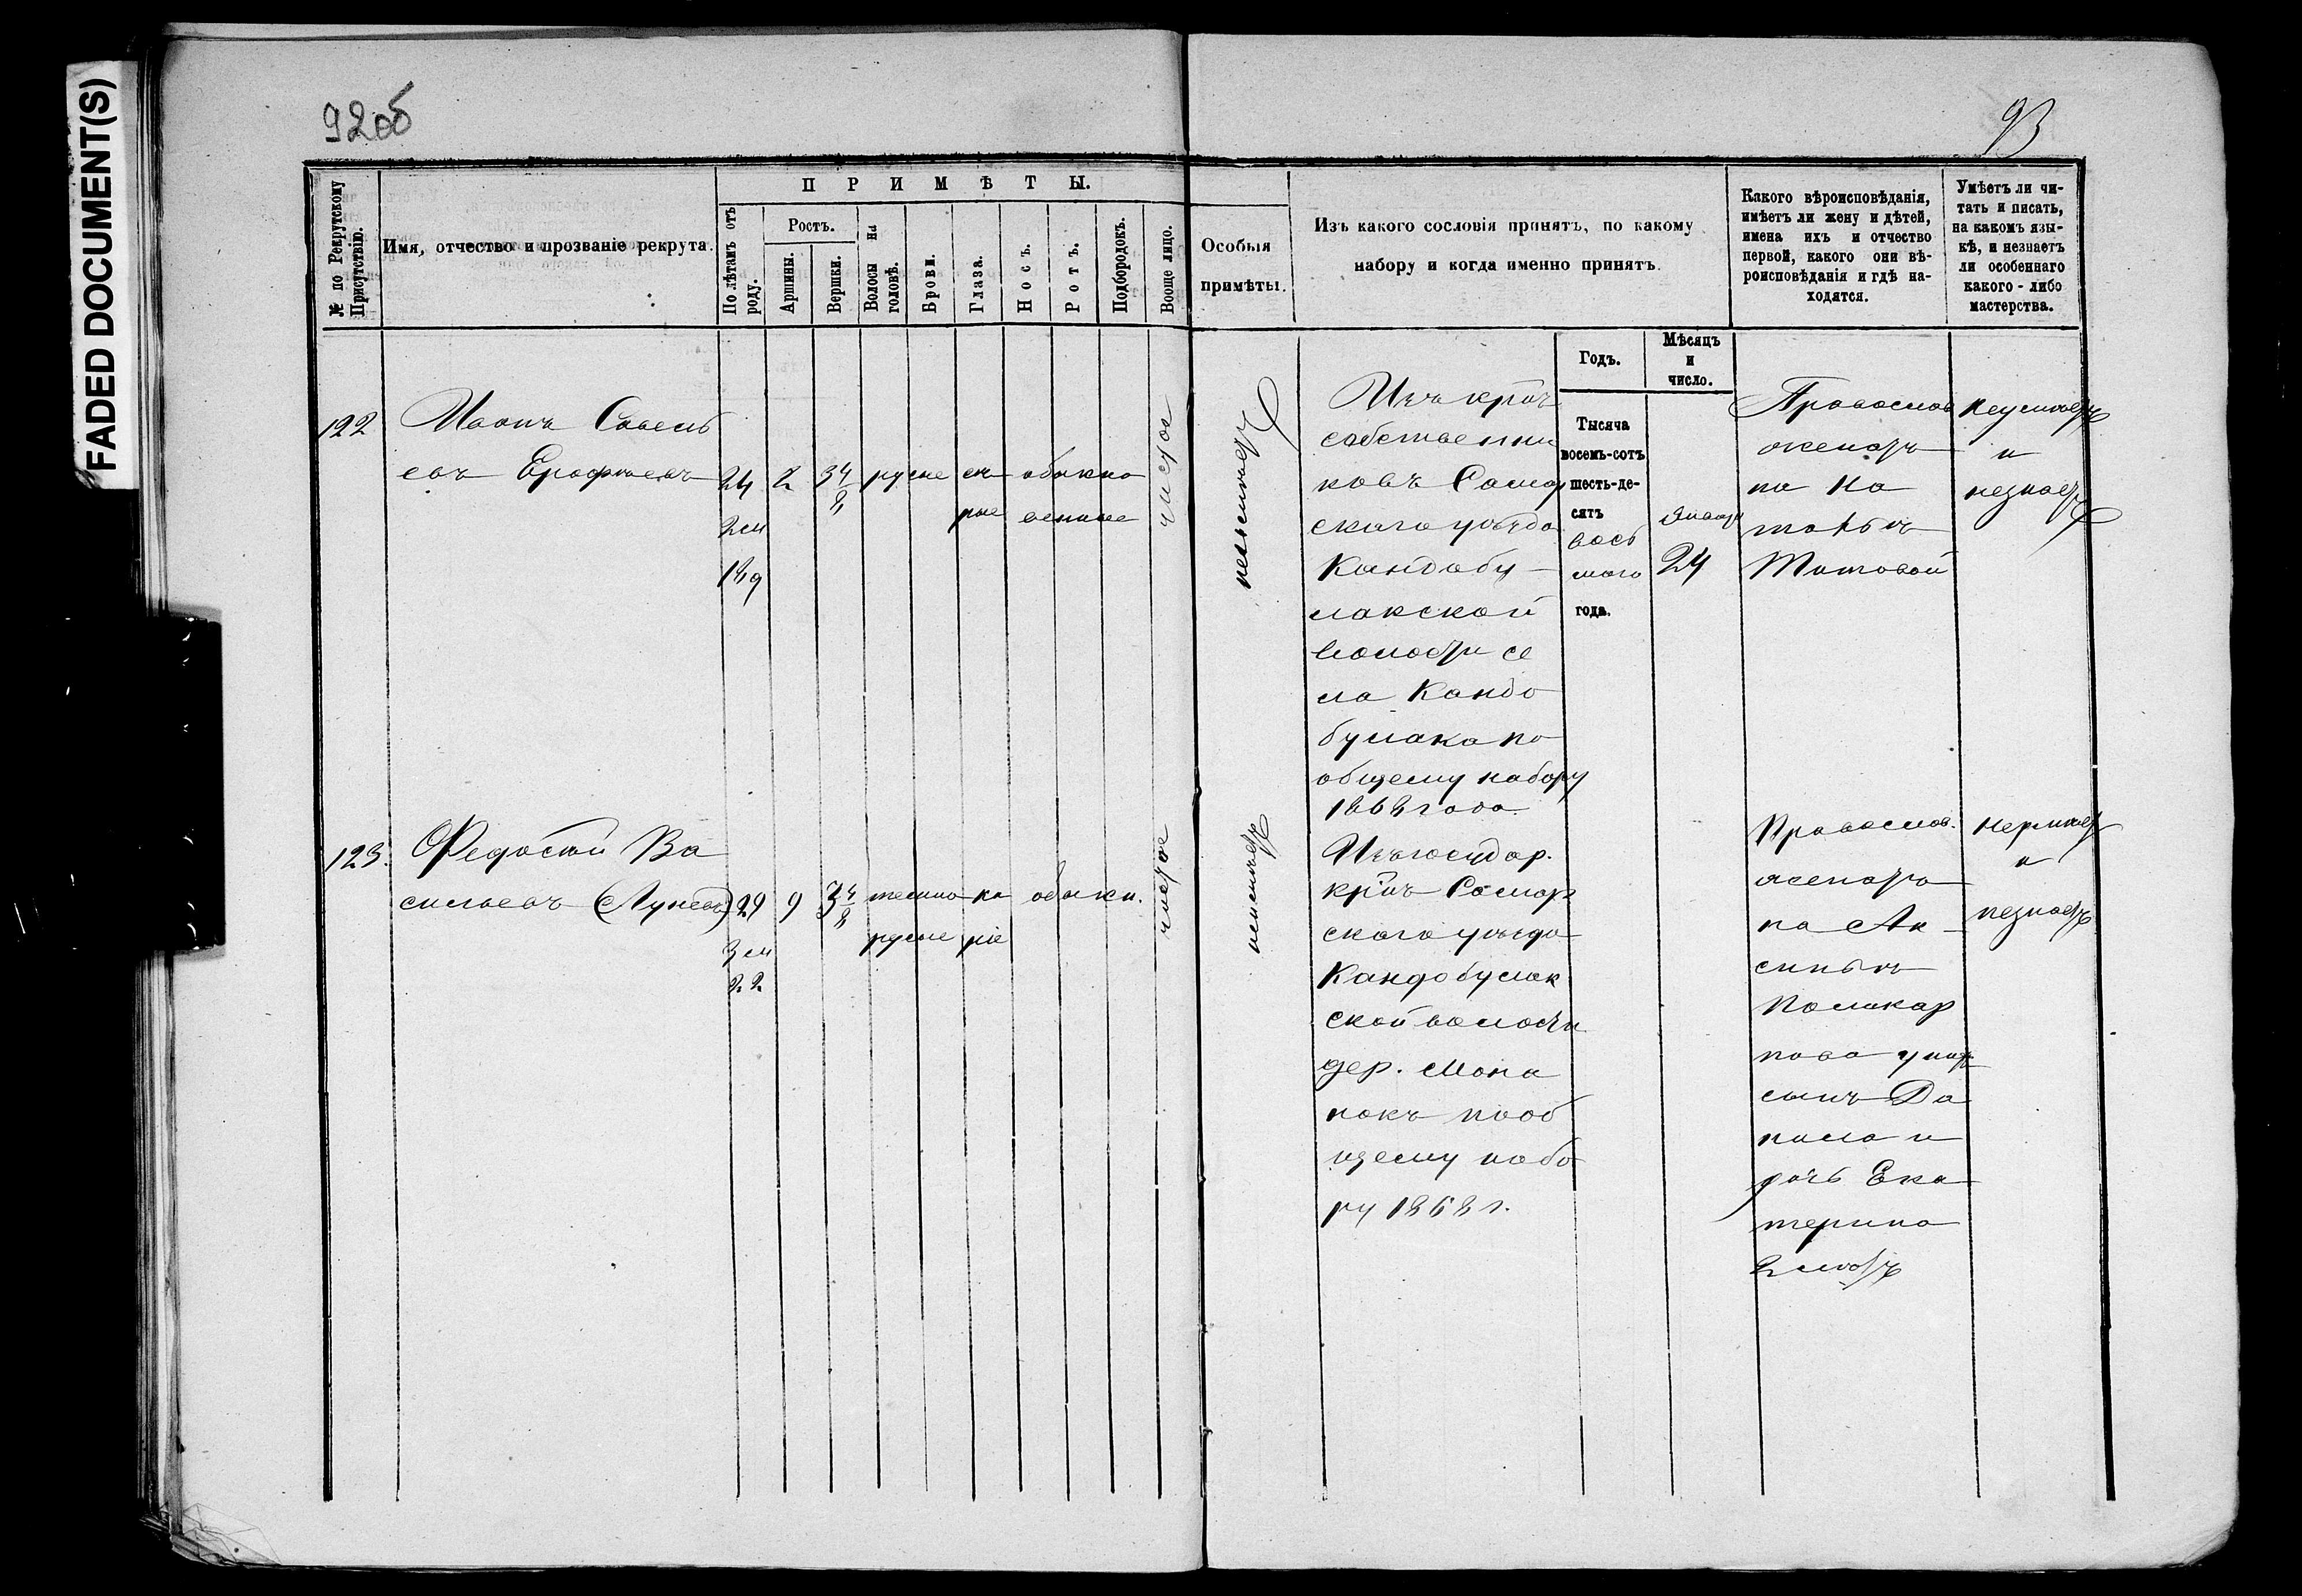 FADED DOCUMENT(S)
92об
93
№ по Рекрутскому Присутствію.
Имя, отчество и прозваніе рекрута.
ПРИМѢТЫ.
По лѣтамъ отъ роду.
Ростъ.
Аршины.
Вершки.
Волосы на головѣ.
Брови.
Глаза.
Носъ.
Ротъ.
Подбородокъ.
Вообще лицо.
Особыя
примѣты.
Изъ какого сословія принятъ, по какому
набору и когда именно принятъ.
Какого вѣроисповѣданія,
имѣетъ ли жену и дѣтей,
имена ихъ и отчество
первой, какого они вѣ-
роисповѣданія и гдѣ на-
ходятся.
Умѣетъ ли чи-
тать и писать,
на какомъ язы-
кѣ, и незнаетъ
ли особеннаго
какого-либо
мастерства.
Годъ.
Мѣсяцъ
и
число.
122
Иванъ Савель
евъ Ерофѣевъ
24
2 3 4/8 русые сѣ обыкно
рые венные
чистое
неимѣетъ
Изъ крѣп
собственни
ковъ Самар
скаго уѣзда
Кандабу-
лакской
волости се
ла Кандо
булака по
общему набору
1868 года
Тысяча
восемь-сотъ
шесть-де-
сятъ
вось
маго
года.
Январ
24
Православ
женатъ
на На
тальѣ
Титовой
Неумѣетъ
и
незнаетъ
123.
Федосѣй Ва
сильевъ (Луневъ)
29 9 3 4/8 темно ка обыкн.
русые ріе
22
чистое
неимѣетъ
Изъ государ.
крѣп Самар
скаго уѣзда
Кандобулак
ской волости
дер.
нокъ по об
щему набо
ру 1868 г.
Православ.
женатъ
на Ак
синьѣ
Поликар
пова у нихъ
сынъ Да
нила и
дочь Ека
терина
2 лѣтъ
Неумѣет
и
незнаетъ